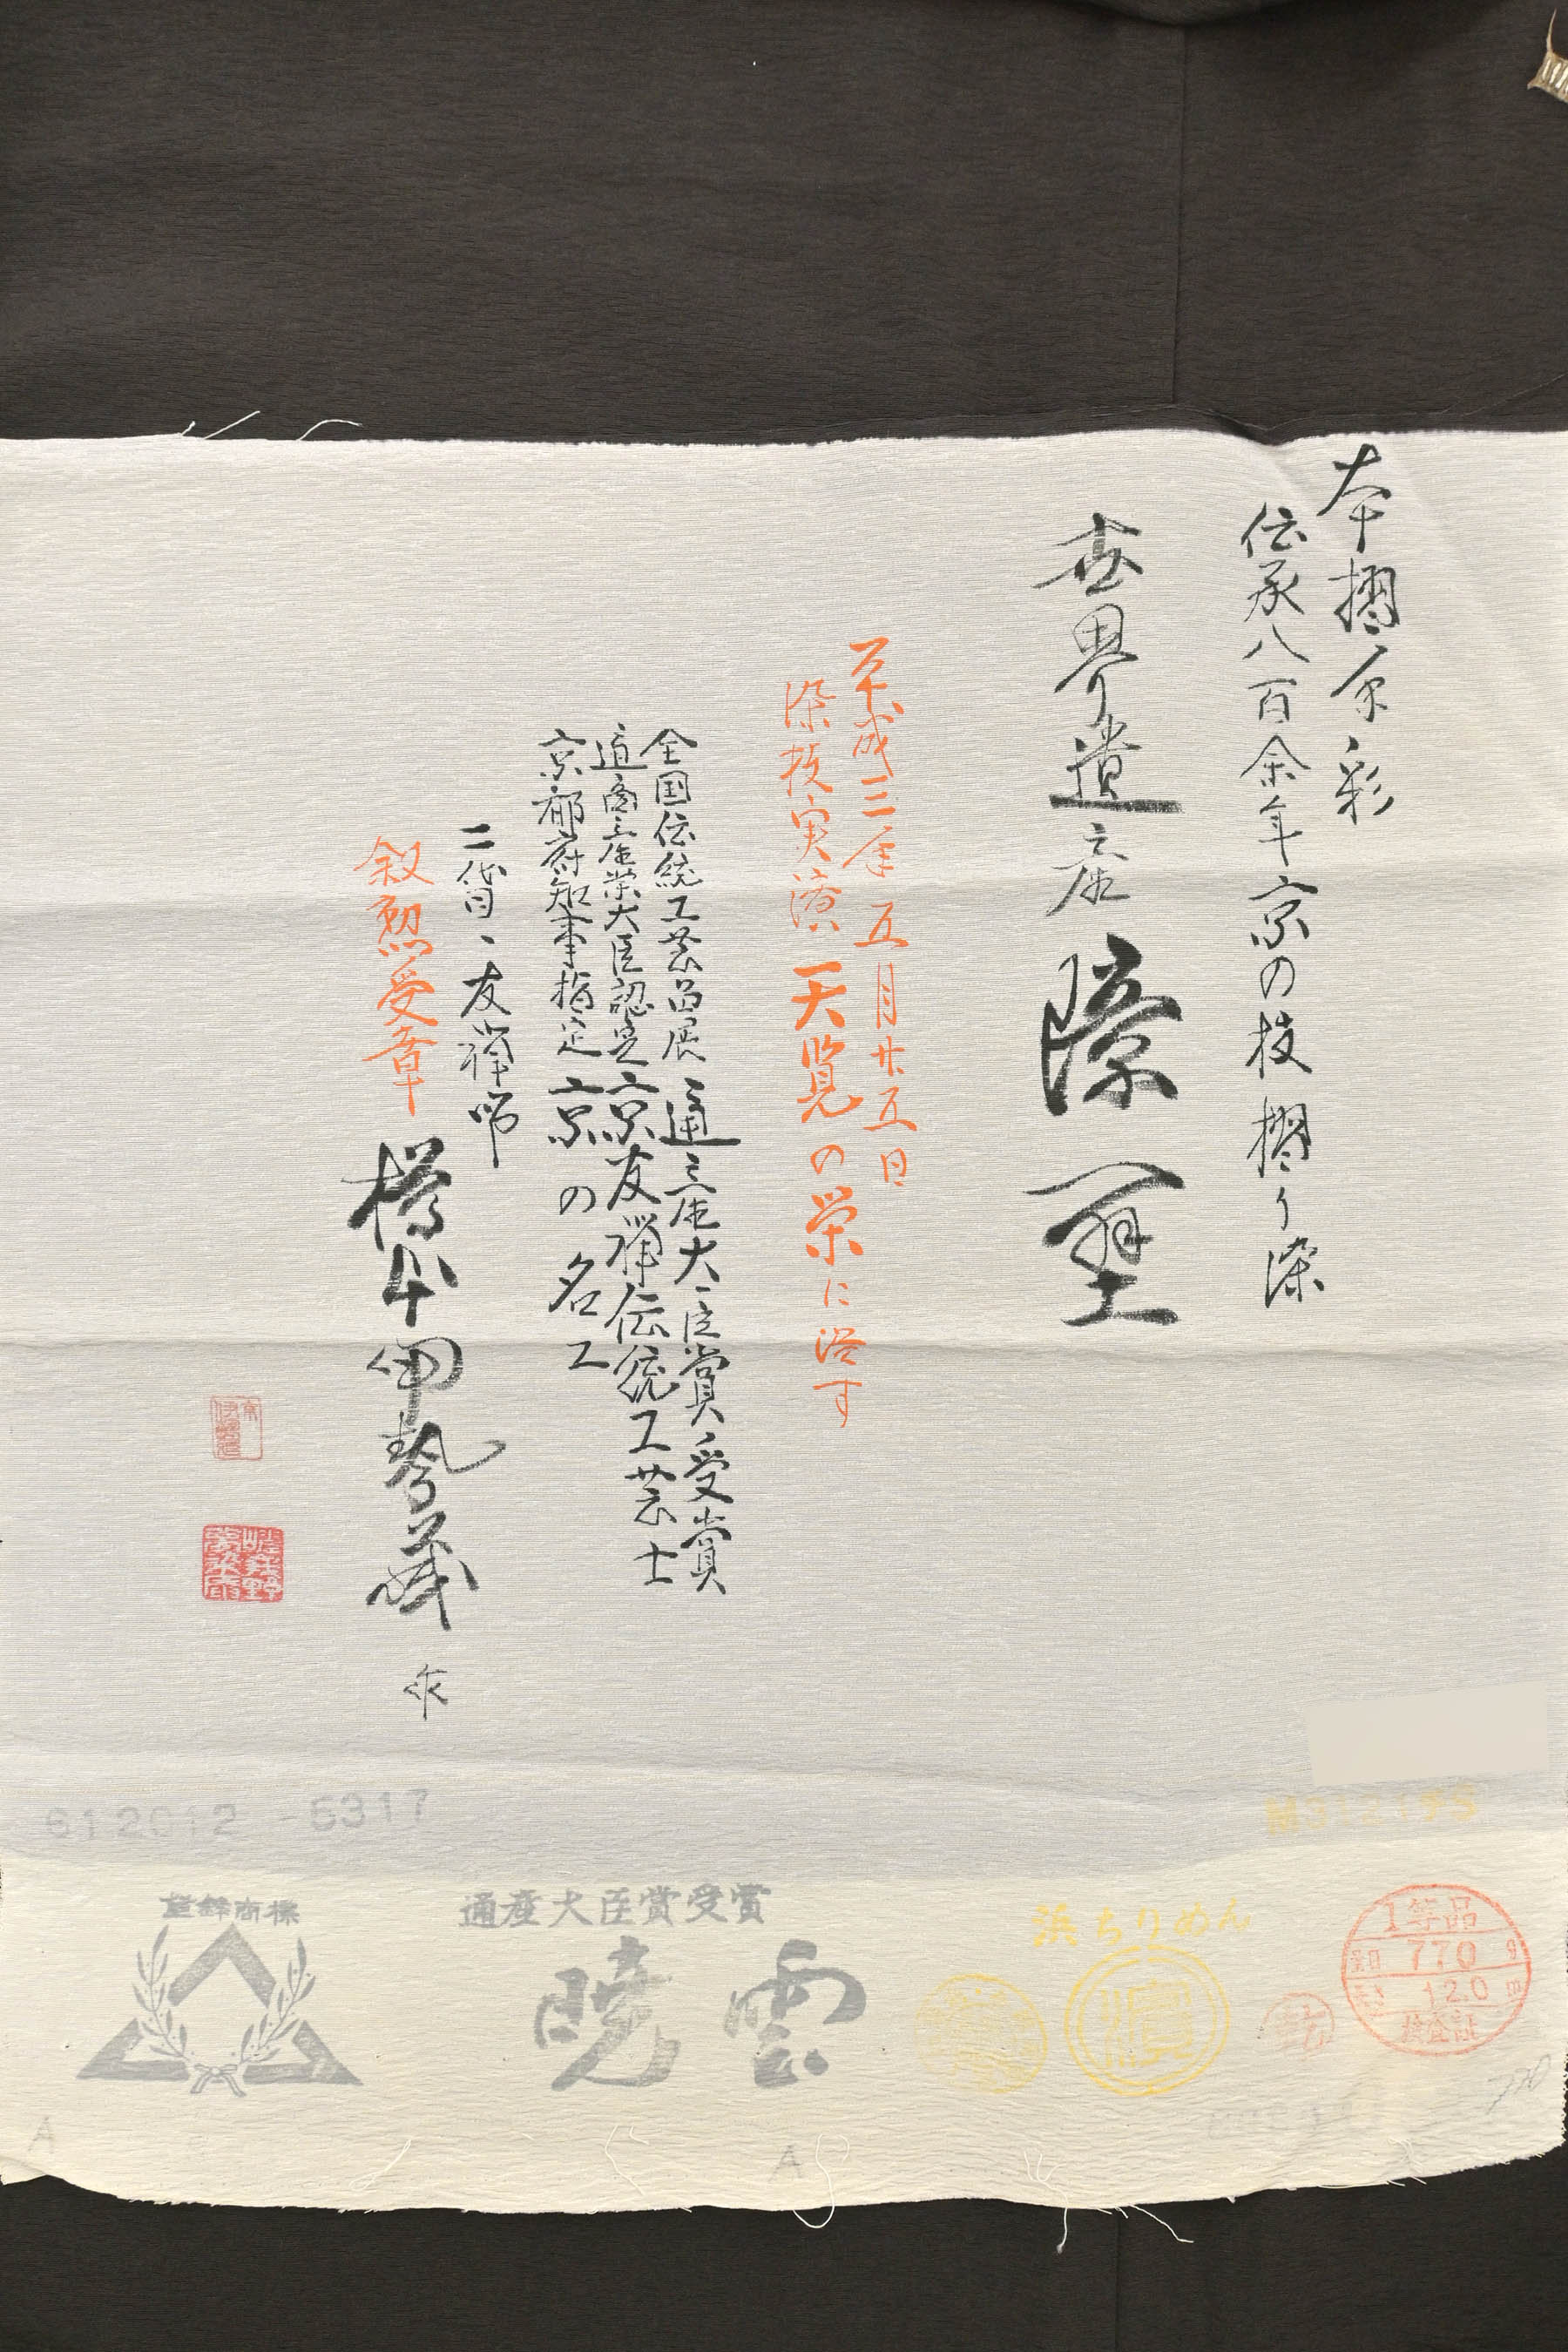 本摺友彩
伝承八百余年京の技摺り染
世界遺産 障壁
平成三年五月廿五日
染技実演 天覧の栄に浴す
全国伝統工芸品展 通産大臣賞受賞
通商産業大臣認定 京友禅伝統工芸士
京都府知事指定 京の名工
二代目、友禅師
叙勲受章
樽本伊勢義
作
612012 -5317
登録商標
通産大臣賞受賞
暁雲
浜ちりめん
濱
1等品
770 g
12.0 m
検査証
770
A
A